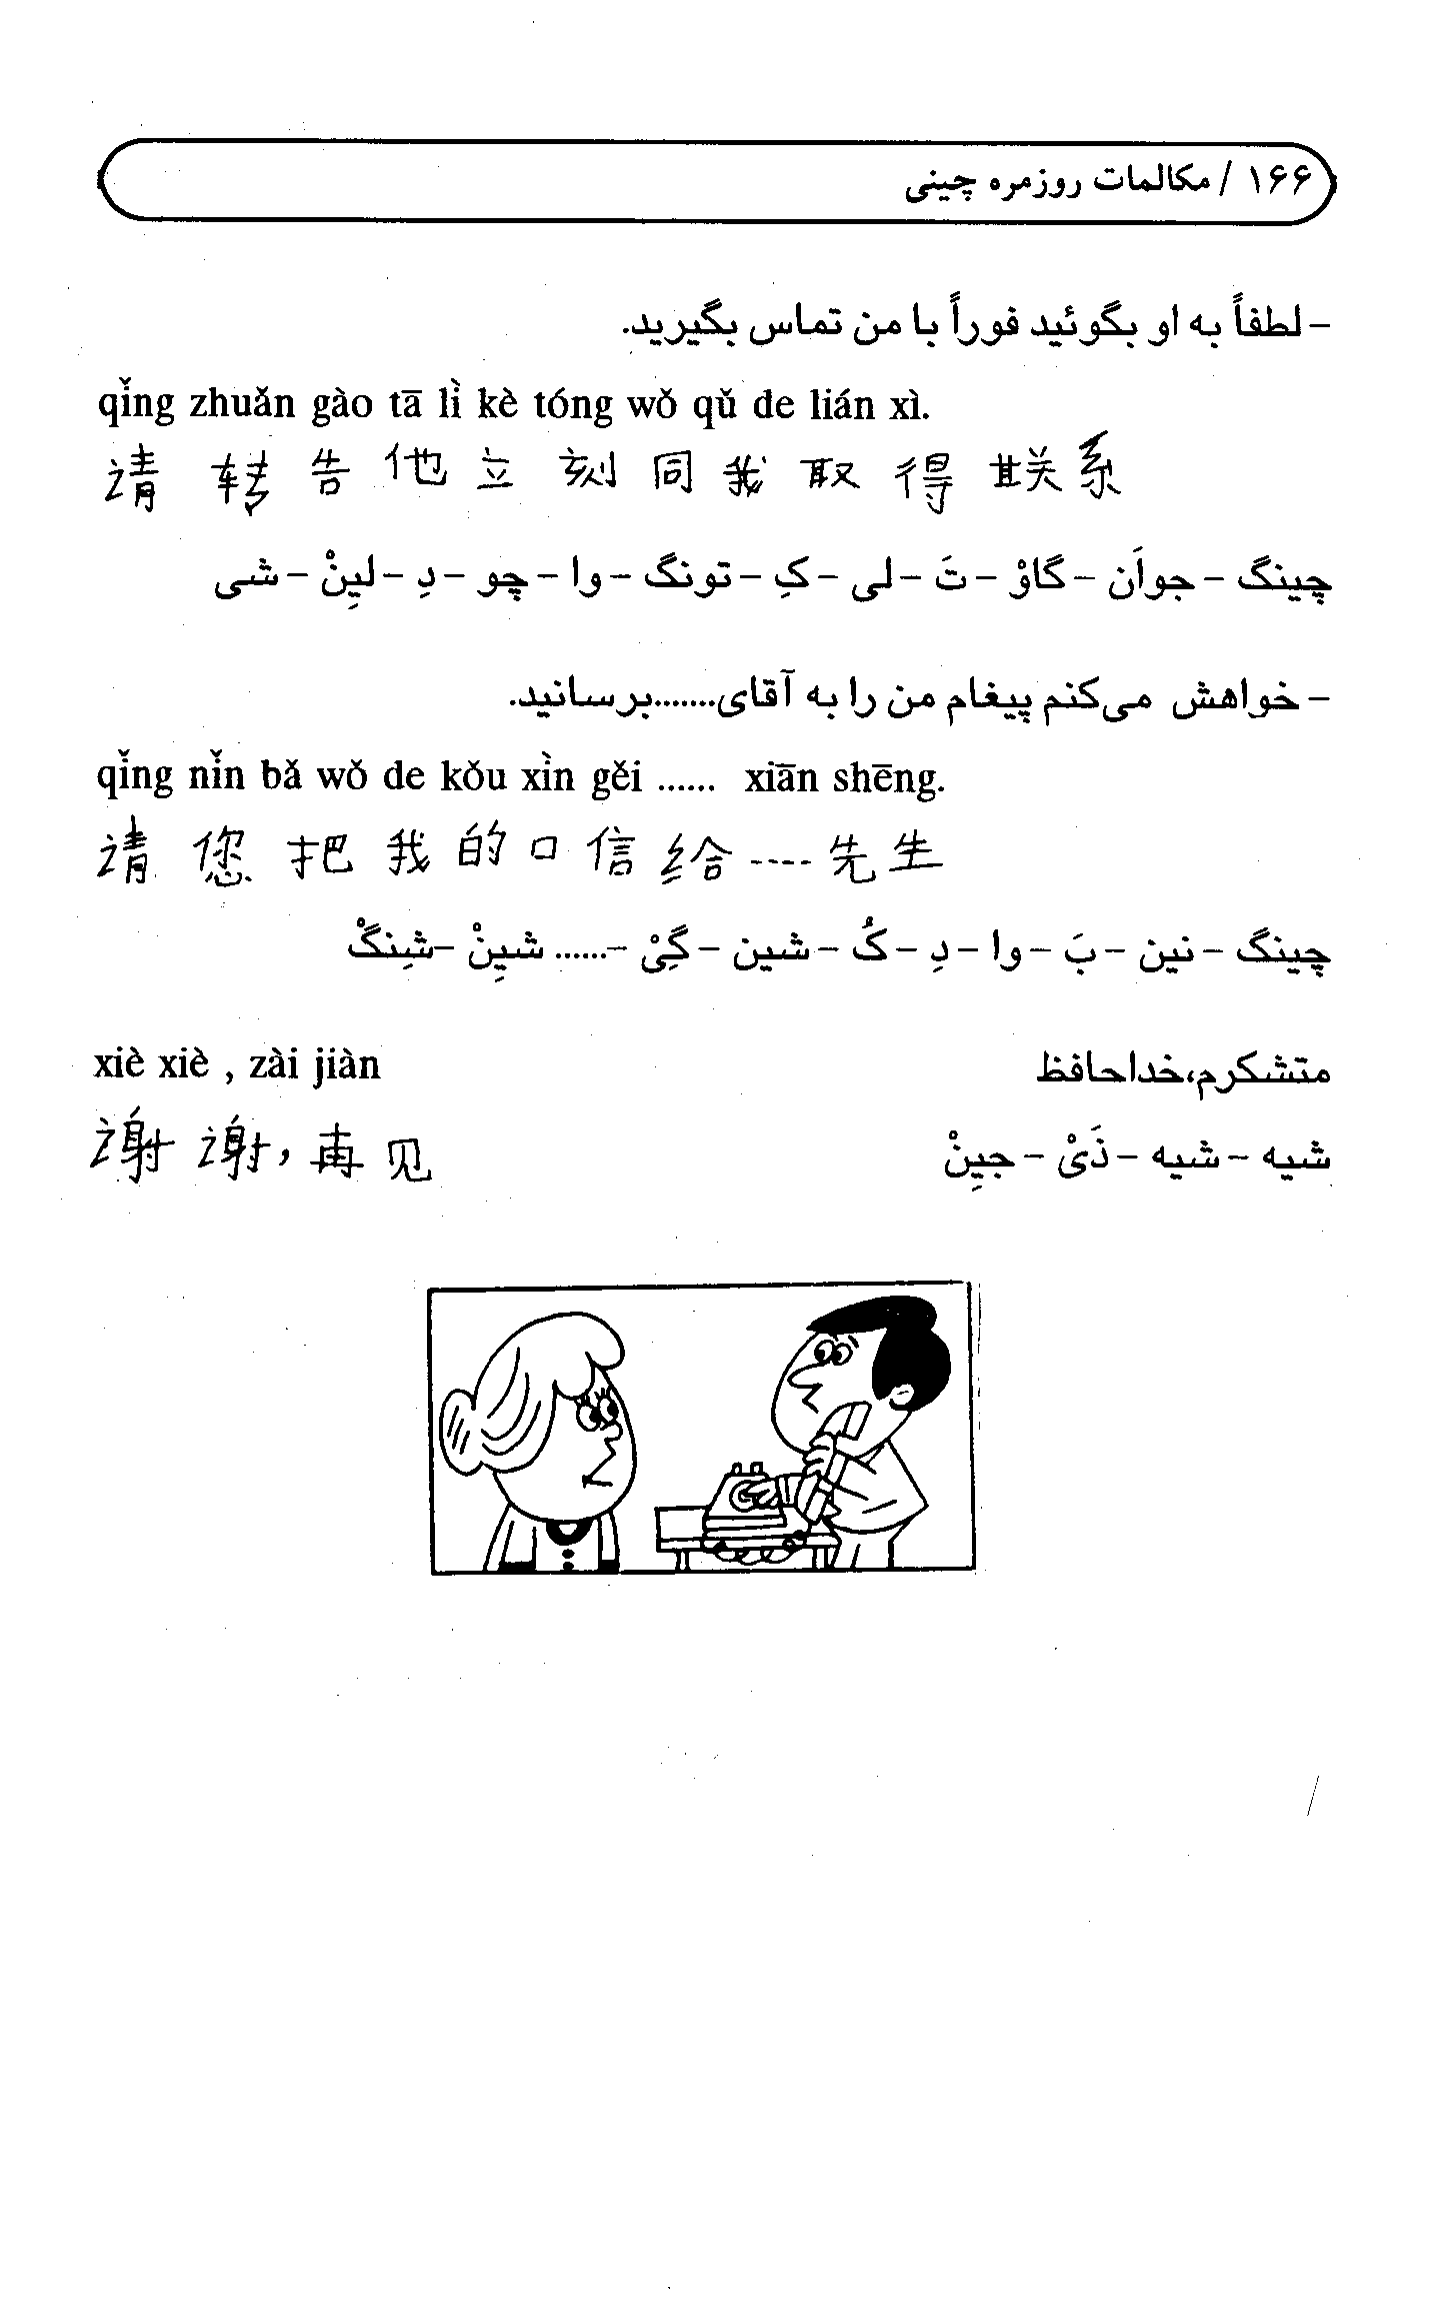 ۱۶۶ / مکالمات روزمره چینی
– لطفاً به او بگوئید فوراً با من تماس بگیرید.
qǐng zhuǎn gào tā lì kè tóng wǒ qǔ de lián xì.
请 转 告 他 立 刻 同 我 取 得 联 系
چینگ – جواَن – گاوْ – تَ – لی – کِ – تونگ – وا – چو – دِ – لیِنْ – شی
– خواهش می‌کنم پیغام من را به آقای.......برسانید.
qǐng nǐn bǎ wǒ de kǒu xìn gěi ...... xiān shēng.
请 您 把 我 的 口 信 给 ---- 先 生
چینگ – نین – بَ – وا – دِ – کُ – شین – گِیْ –...... شیِنْ –شِنگْ
xiè xiè , zài jiàn متشکرم،خداحافظ
谢 谢, 再 见 شیه – شیه – ذَیْ – جیِنْ